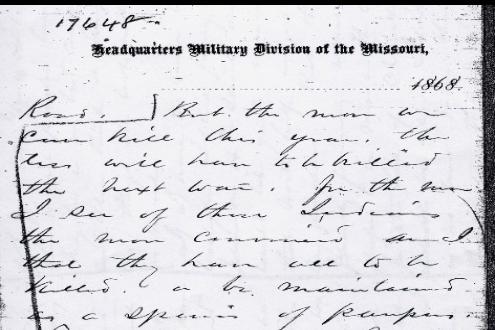 17648
Headquarters Military Division of the Missouri,
1868.
Road.] But the more we
can kill this year, the
less will have to be killed
the next war. for the more
I see of these Indians
the more convinced am I
that they have all to be
killed. or be maintained
as a species of paupers